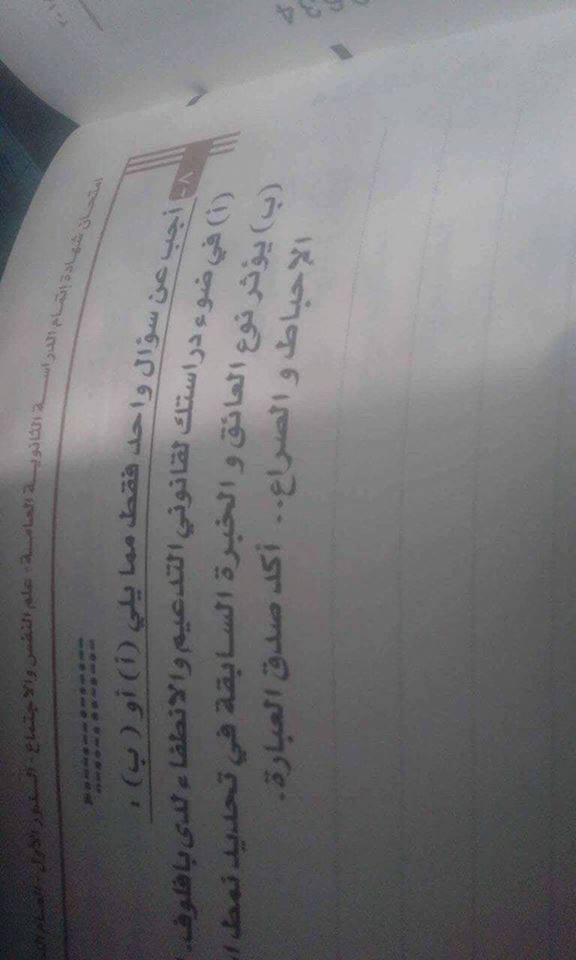 امتحان شهادة إتمام الدراسة الثانوية العامة - علم النفس والاجتماع - الدور الأول - العام
٧- أجب عن سؤال واحد فقط مما يلي (أ) أو (ب) :
(أ) في ضوء دراستك لقانوني التدعيم والانطفاء لدى بافلوف..
(ب) يؤثر نوع العائق و الخبرة السابقة في تحديد نمط
الإحباط و الصراع.. أكد صدق العبارة.